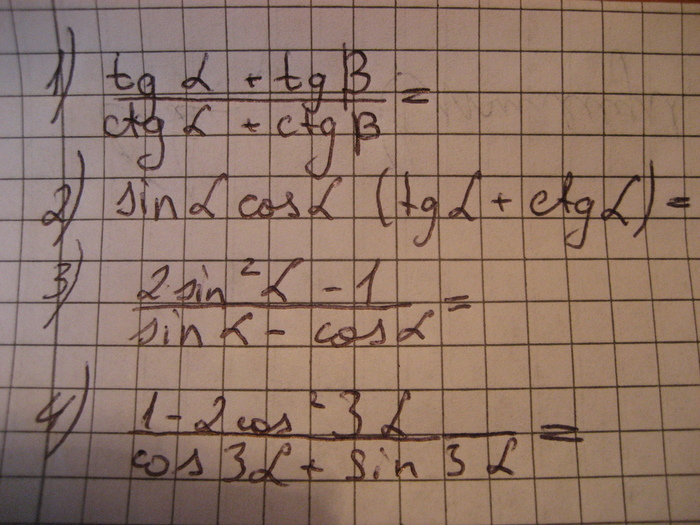 1) tg α + tg β
ctg α + ctg β =
2) sin α cos α (tg α + ctg α) =
3) 2 sin² α - 1
sin α - cos α =
4) 1 - 2 cos² 3 α
cos 3 α + sin 3 α =